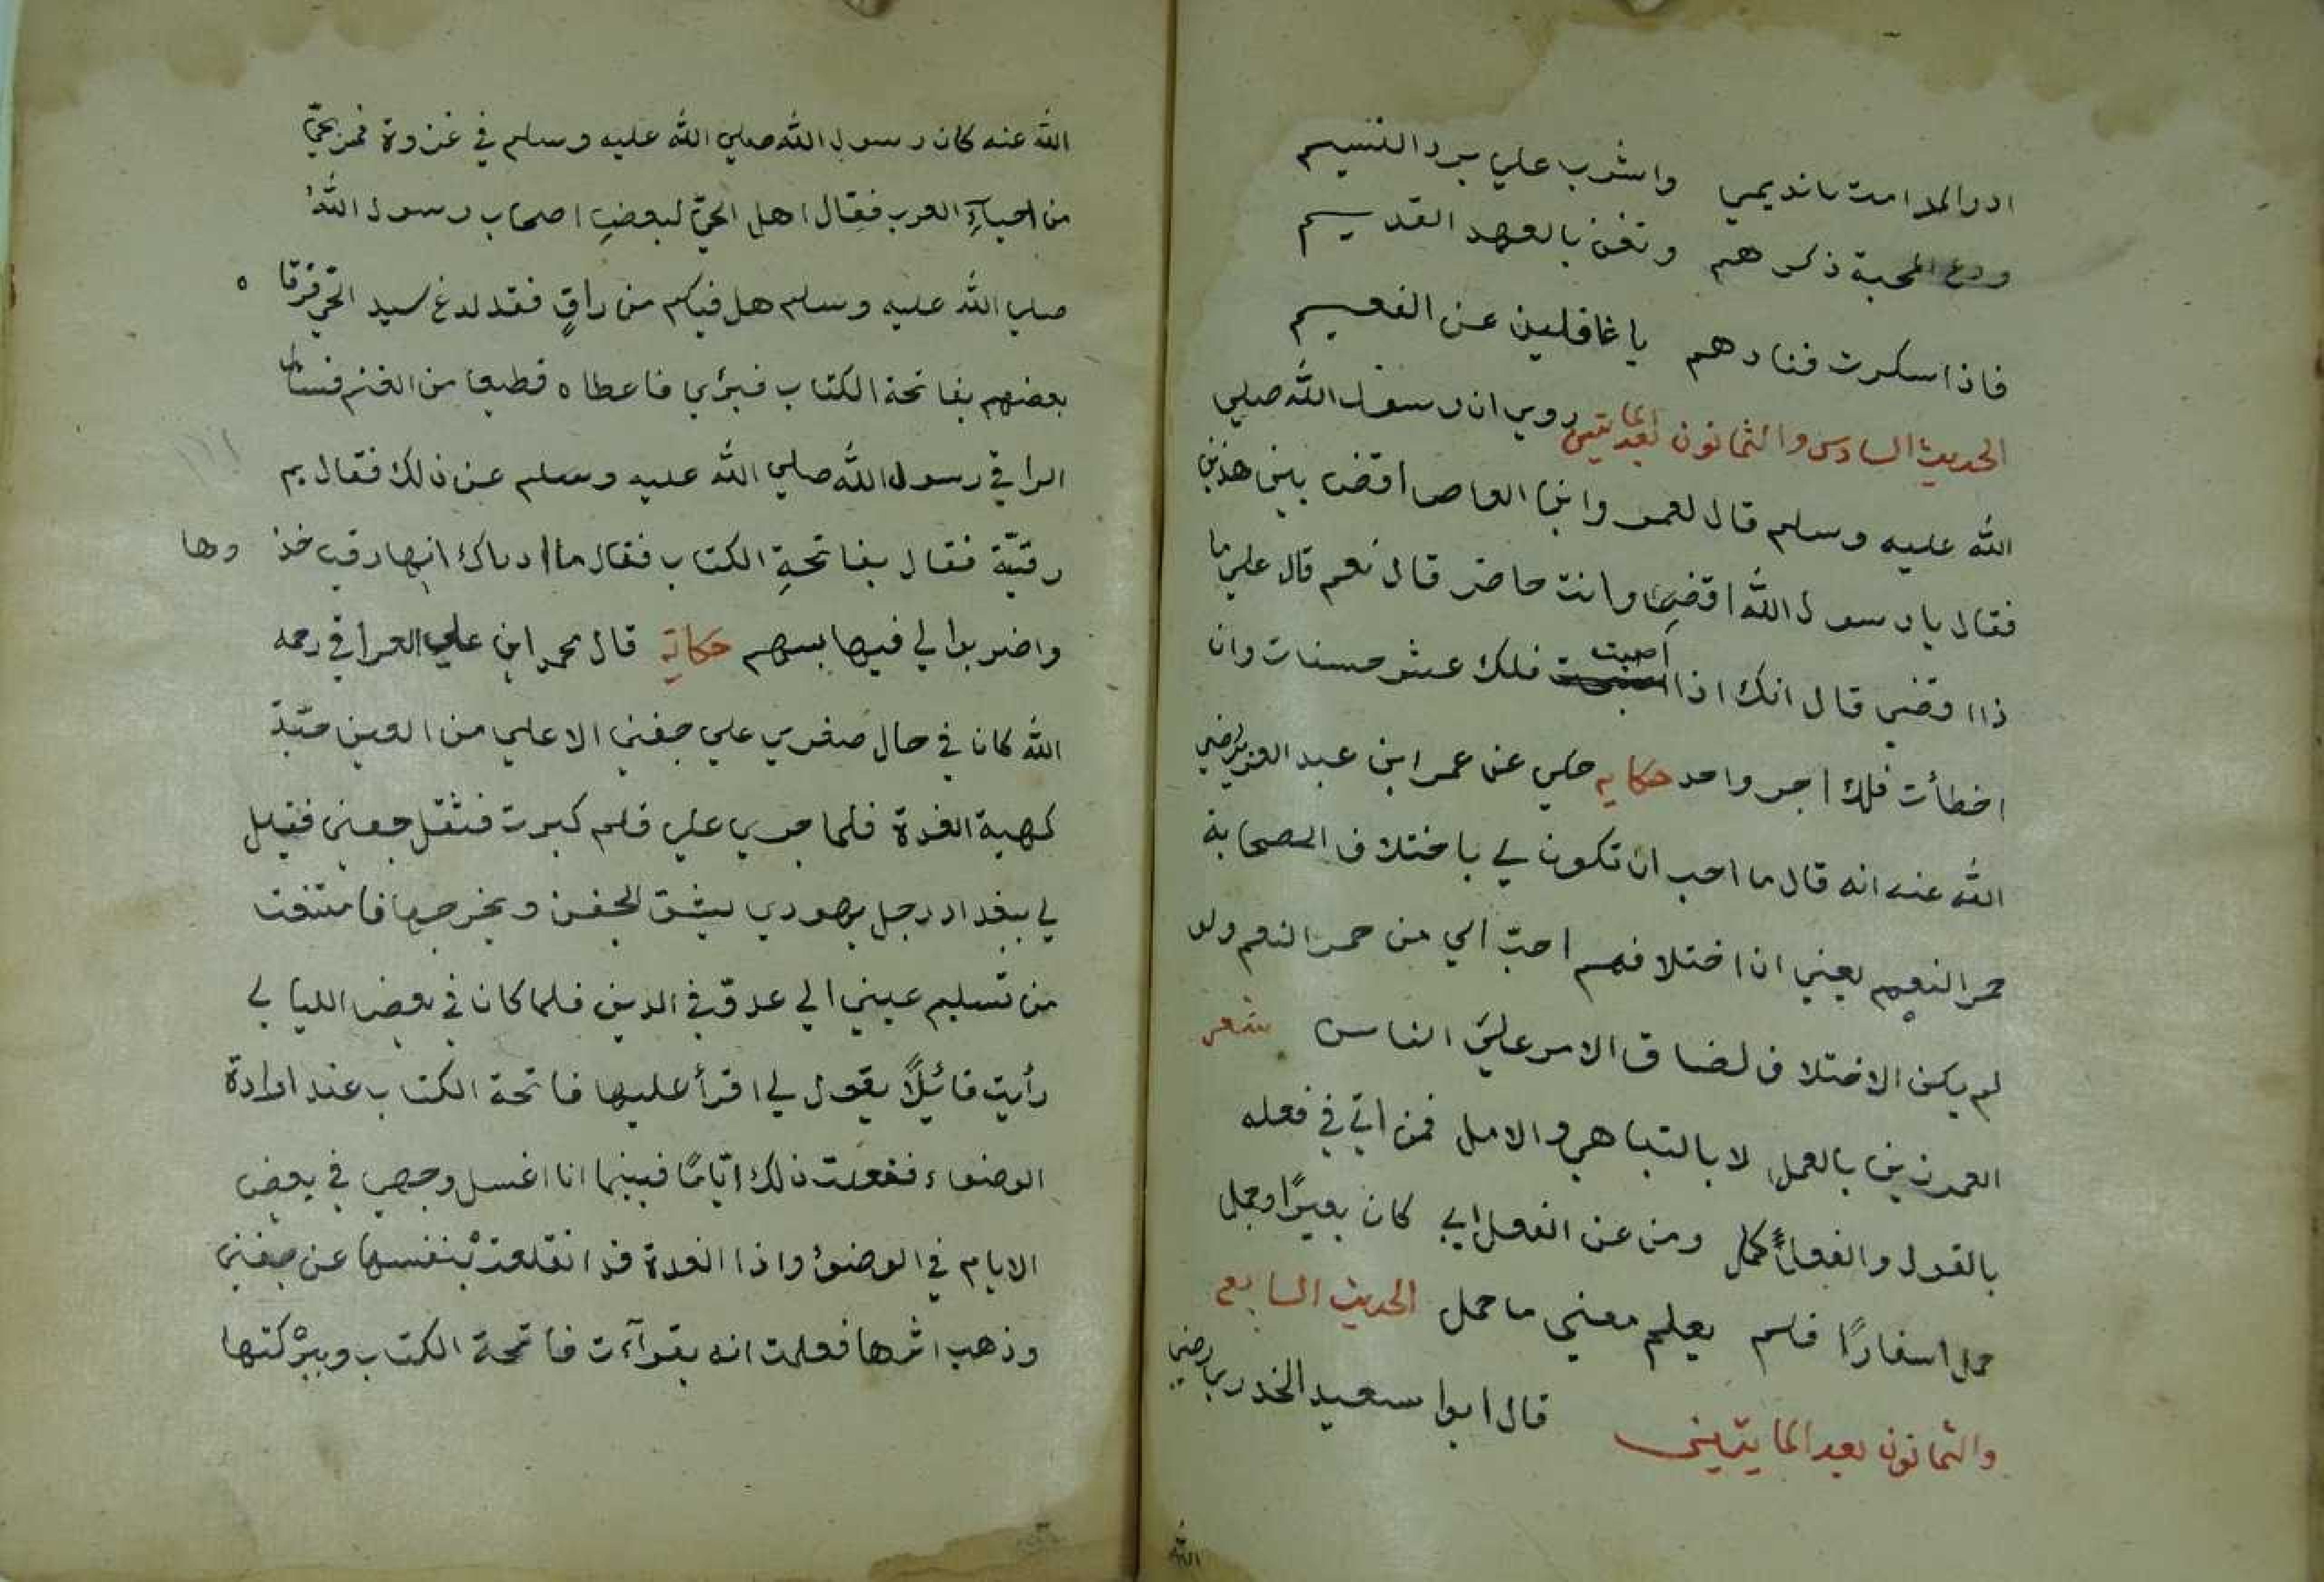 ادر المدامت يا نديمي واشرب علي برد النسيم
ودع المحبة ذكرهم وتغن بالعهد القديم
فاذا سكرت فنادهم يا غافلين عن النعيم
الحديث السادس والثمانون بعد المايتين روي ان رسول الله صلي
الله عليه وسلم قال لعمرو ابن العاص اقض بين هذين
فقال يا رسول الله اقضي وانت حاضر قال نعم قال علي ما
ذا اقضي قال انك اذا اصبت فلك عشر حسنات وان
اخطأت فلك اجر واحد حكايه حكي عن عمر ابن عبد العزيز رضي
الله عنه انه قال ما احب ان تكون لي باختلاف الصحابة
حمر النعيم يعني ان اختلافهم احبّ الي من حمر النعم ولو
لم يكن الاختلاف لضاق الامر علي الناس شعر
العمر زين بالعمل لا بالتباهي والامل فمن اتي في فعله
بالقول والفعل كمل ومن عن الفعل ابي كان بعيرًا وجمل
حمل اسفارًا فلم يعلم معني ما حمل الحديث السابع
والثمانون بعد المايتين قال ابوا سعيد الخدري رضي
الله
الله عنه كان رسول الله صلي الله عليه وسلم في غزوة فمر بحيّ
من احياءِ العرب فقال اهل الحيّ لبعضِ اصحاب رسول الله
صلي الله عليه وسلم هل فيكم من راقٍ فقد لدغ سيد الحي فرقا ه
بعضهم بفاتحة الكتاب فبرئ فاعطاه قطيعا من الغنم فسال
الراقي رسول الله صلي الله عليه وسلم عن ذلك فقال بم
رقيّة فقال بفاتحةِ الكتاب فقال ما ادراك انها رقية خذوها
واضربوا لي فيها بسهم حكاية قال محمد ابن علي العراقي رحمه
الله كان في حال صغري علي جفني الاعلي من العين حبّة
كهية الغدة فلما جري علي قلم كبرت فثقل جفني فقيل
لي ببغداد رجل يهودي يشق الجفن ويخرجها فامتنعت
من تسليم عيني الي عدوّ في الدين فلما كان في بعض الليالي
رأيت قائِلًا يقول لي اقرأ عليها فاتحة الكتاب عند ارادة
الوضوء ففعلت ذلك ايّامًا فبينما انا اغسل وجهي في بعض
الايام في الوضوء واذا الغدة قد انقلعتْ بنفسها عن جفني
وذهب اثرها فعلمت انه بقرآءت فاتحة الكتاب وببرْكتها